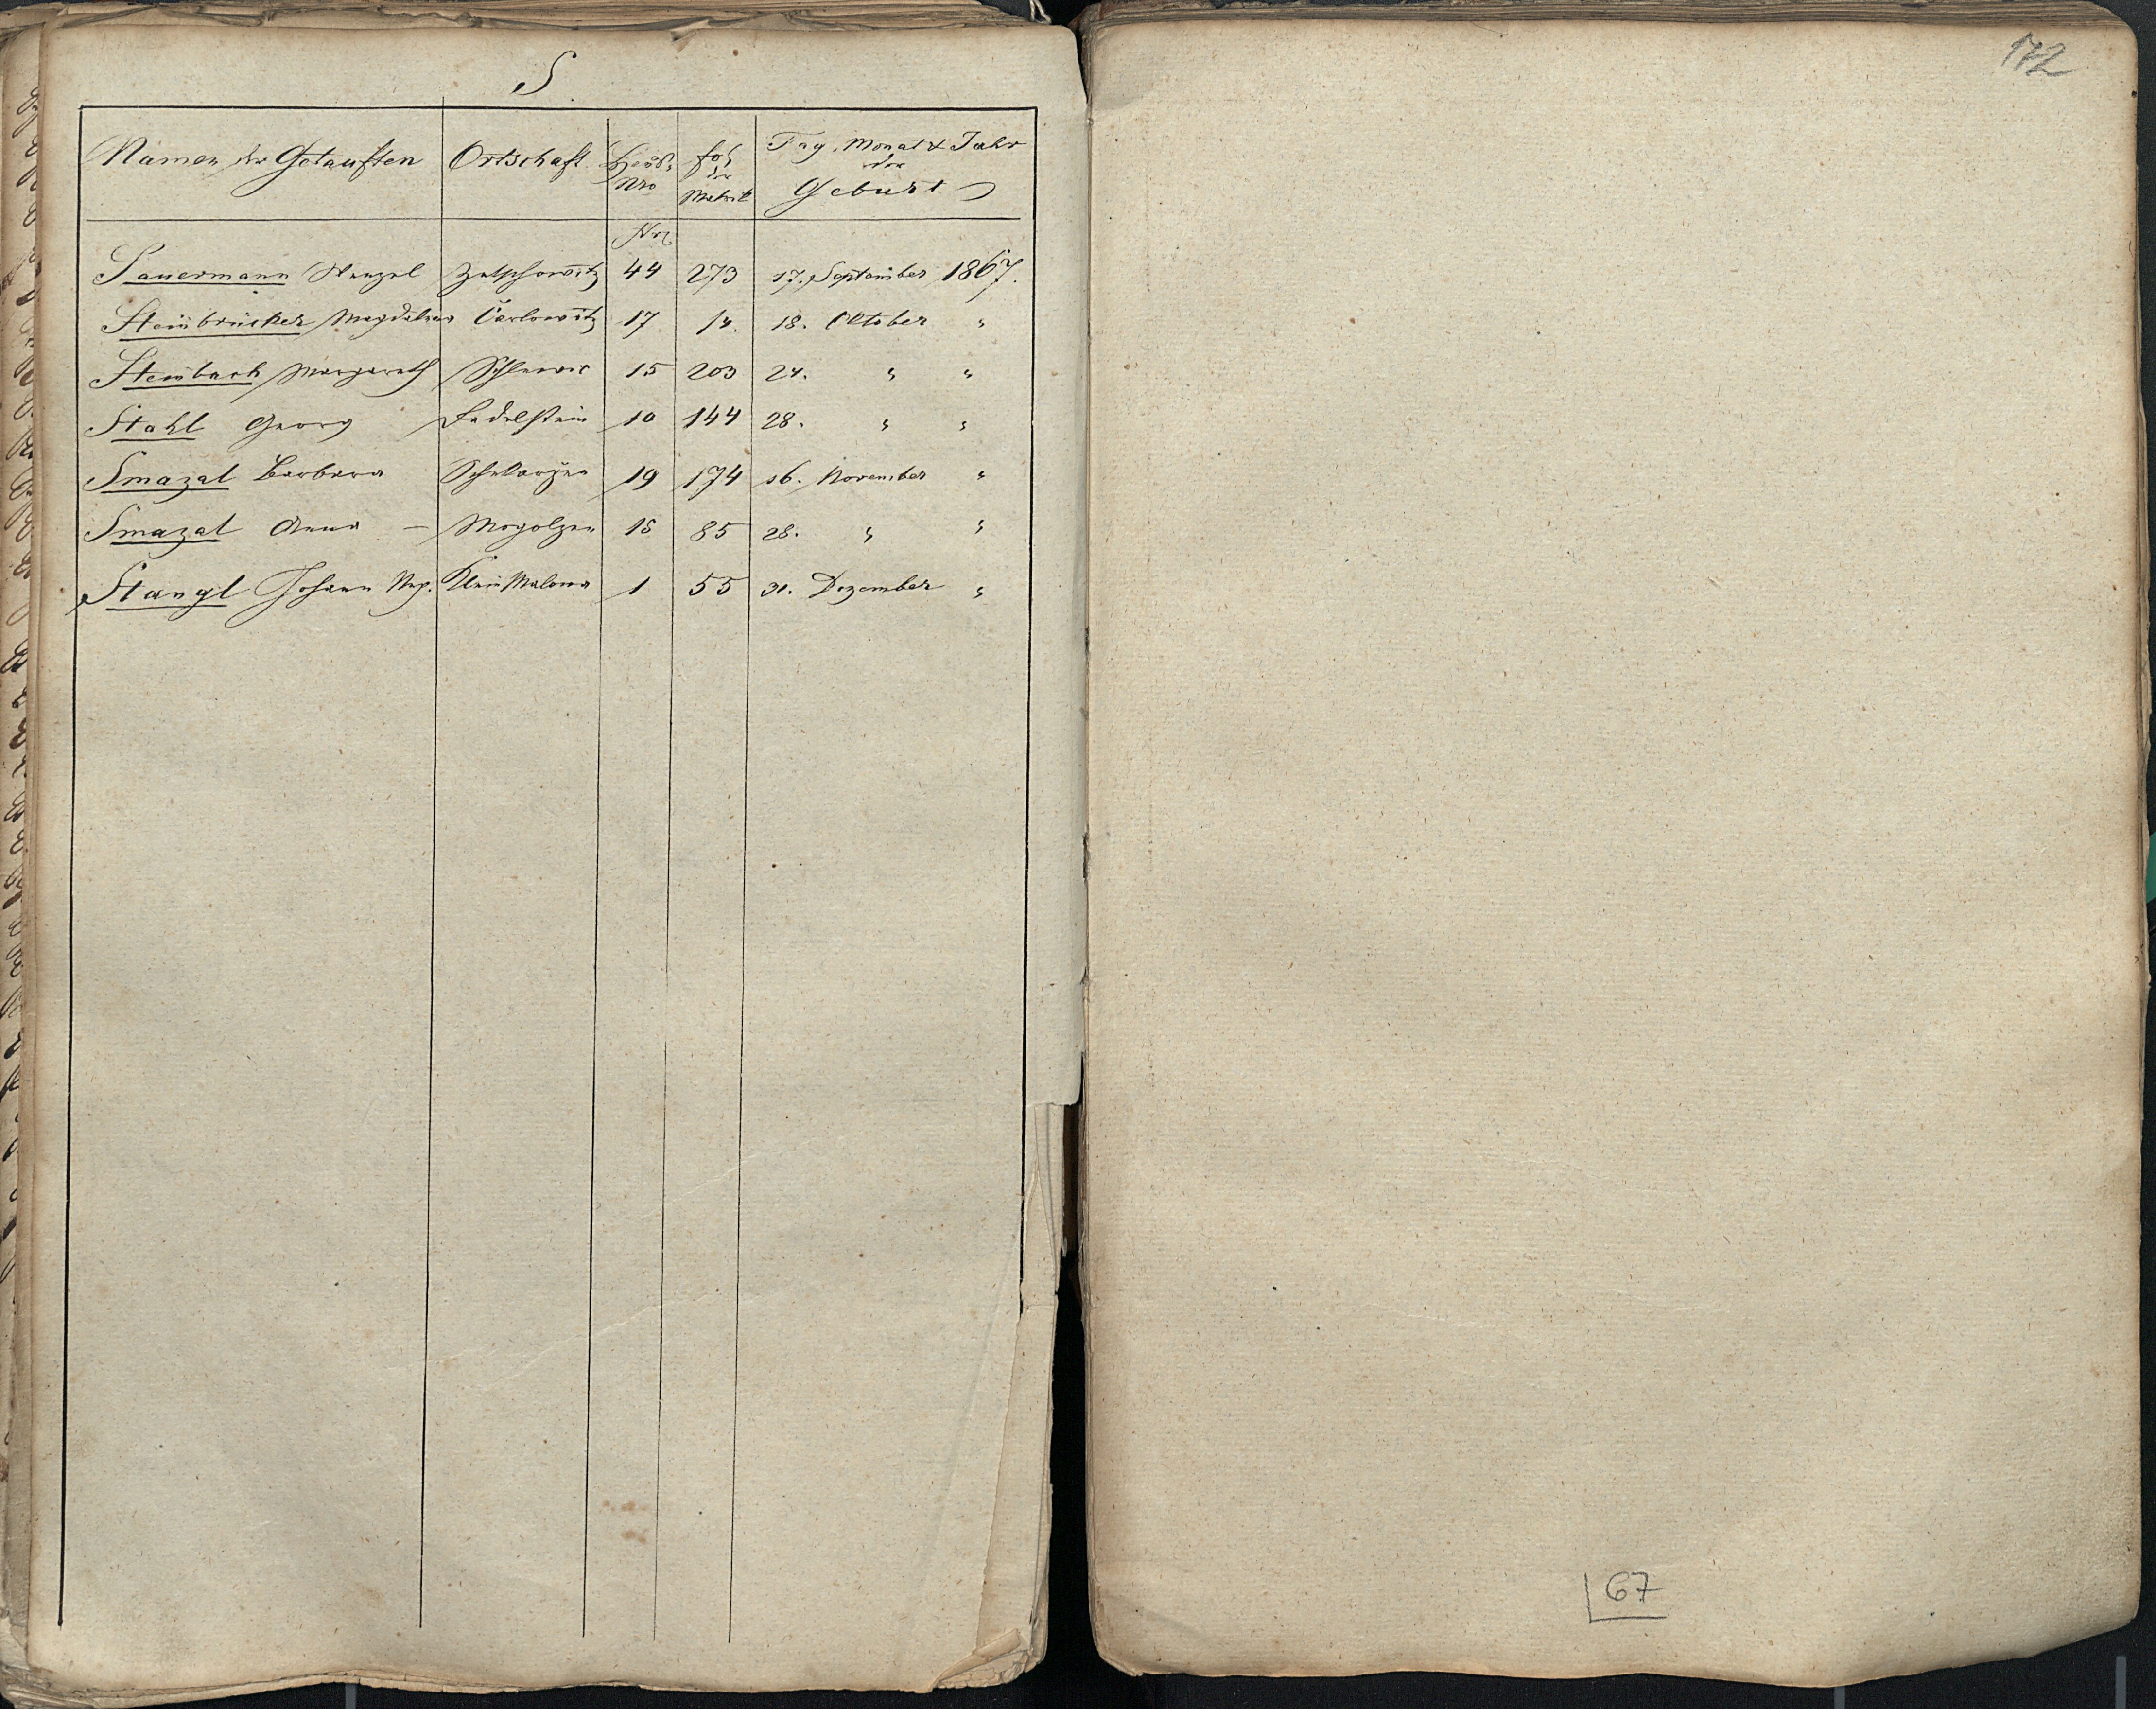 172
S.
Namen der Getauften Ortschaft Haus Nro fol der Matrik Tag, Monat & Jahr der Geburt
Nro
Sauermann Wenzel Zetschowitz 44 273 17. September 1867.
Steinbrücker Magdalena Čarlowitz 17 18. Oktober "
Steinbach Margareth 15 203 24. " "
Stahl Georg 10 144 28. " "
Smazal Barbara 19 174 16. November "
Smazal Anna — Mogolzen 18 85 28. " "
Stangl Johann Nep. Klein Malowa 1 55 31. Dezember "
67